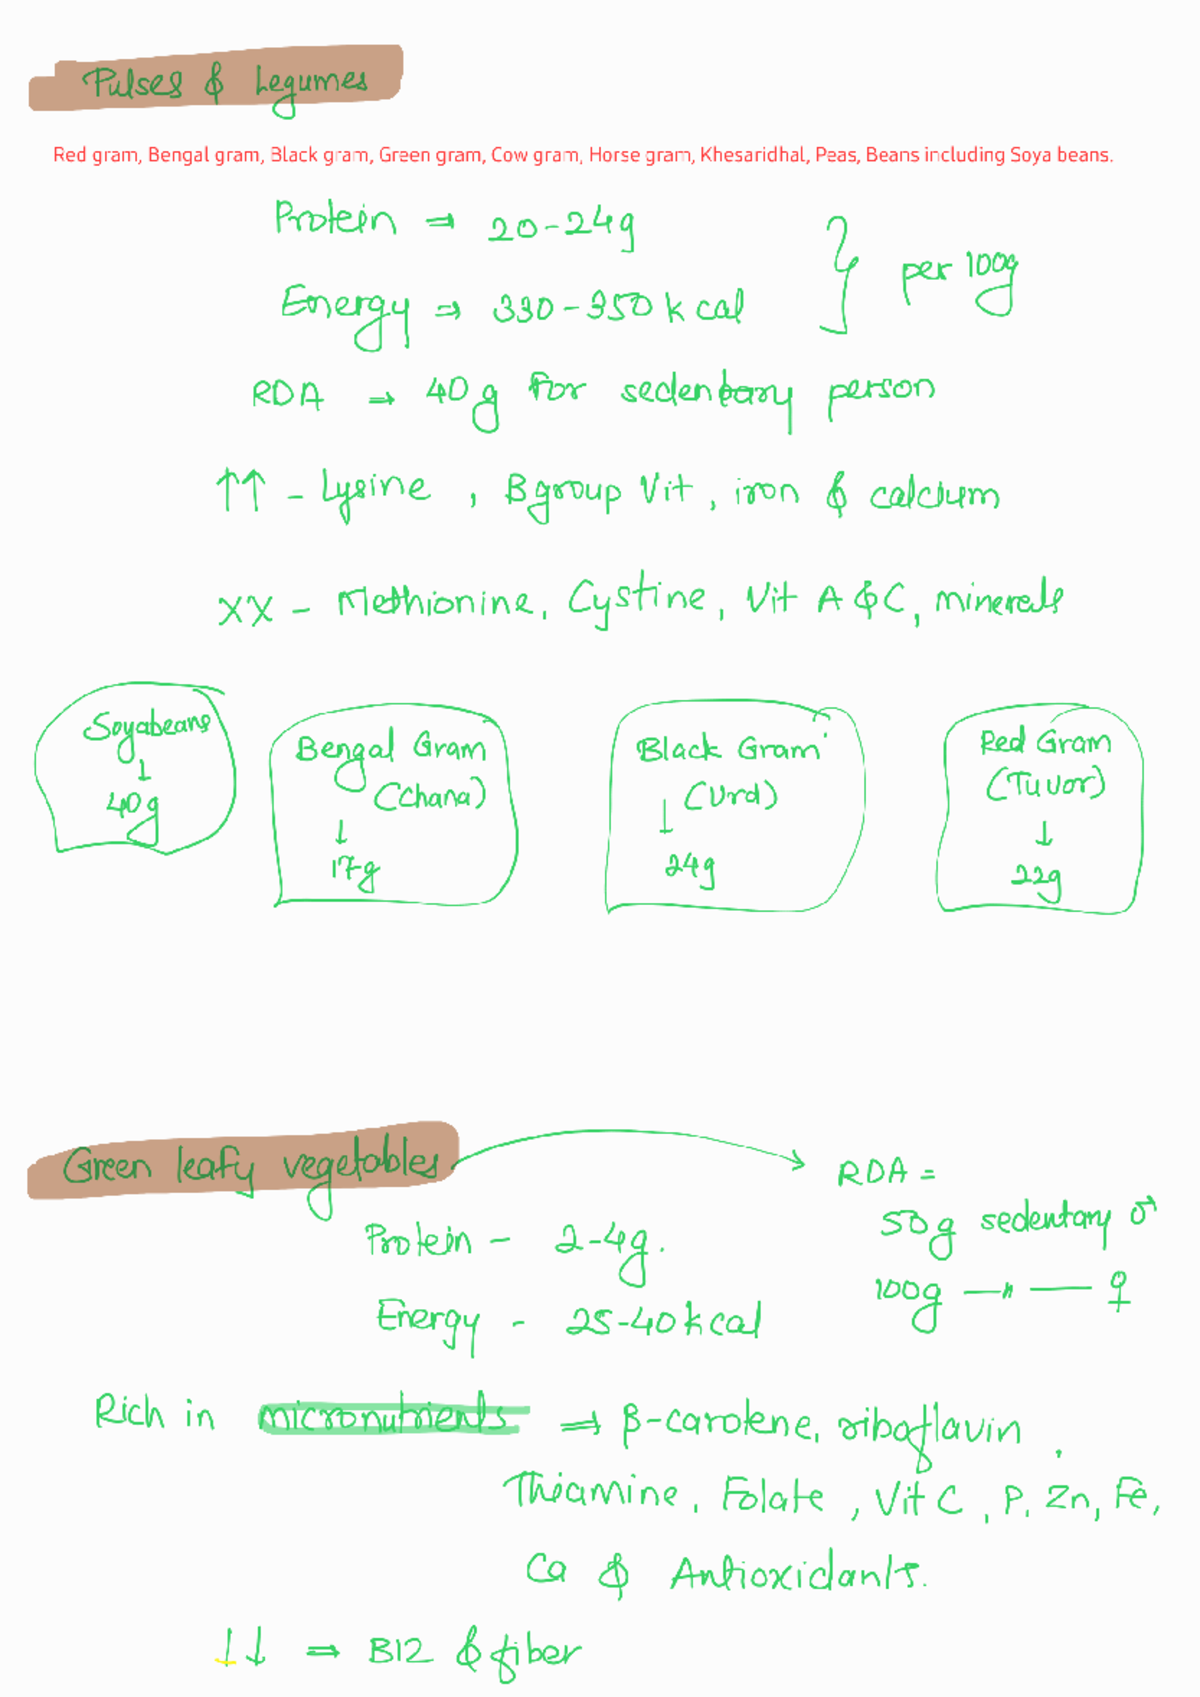 Pulses & Legumes
Red gram, Bengal gram, Black gram, Green gram, Cow gram, Horse gram, Khesaridhal, Peas, Beans including Soya beans.
Protein ⇒ 20-24g
Energy ⇒ 330-350kcal
} per 100g
RDA → 40g for sedentary person
↑↑ - Lysine, B group Vit, iron & calcium
XX - Methionine, Cystine, Vit A & C, minerals
Soyabeans
↓
40g
Bengal Gram
(Chana)
↓
17g
Black Gram
(Urd)
↓
24g
Red Gram
(Tuvor)
↓
22g
Green leafy vegetables → RDA =
50g sedentary ♂
100g —〃— ♀
Protein - 2-4g.
Energy - 25-40kcal
Rich in micronutrients ⇒ β-carotene, riboflavin,
Thiamine, Folate, Vit C, P, Zn, Fe,
Ca & Antioxidants.
↓↓ ⇒ B12 & fiber